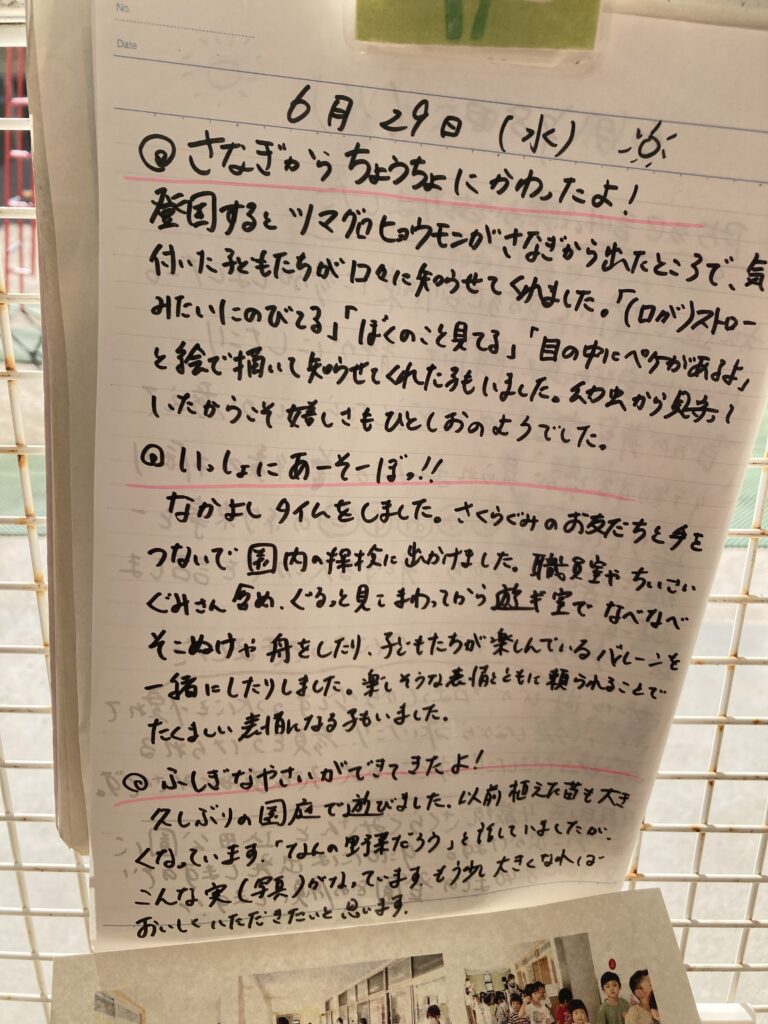 No.
Date
6月29日(水)
さなぎから ちょうちょに かわったよ!
登園すると ツマグロヒョウモンが さなぎから出たところで、気
付いた子どもたちが口々に知らせてくれました。「(口が)ストロー
みたいにのびてる」「ぼくのこと見てる」「目の中にペケがあるよ」
と絵で描いて知らせてくれた子もいました。幼虫から見守って
いたからこそ嬉しさもひとしおのようでした。
いっしょに あーそーぼっ!!
なかよしタイムをしました。さくらぐみのお友だちと手を
つないで園内の探検に出かけました。職員室や ちいさい
ぐみさん含め、ぐるっと見てまわってから遊ぎ室で なべなべ
そこぬけや 舟をしたり、子どもたちが楽しんでいるバルーンを
一緒にしたりしました。楽しそうな表情とともに頼られることで
たくましい表情になる子もいました。
ふしぎなやさいができてきたよ!
久しぶりの園庭で遊びました。以前植えた苗も大き
くなっています。「なんの野菜だろう」と話していましたが、
こんな実(写真)がなっています。もう少し大きくなれば
おいしくいただきたいと思います。